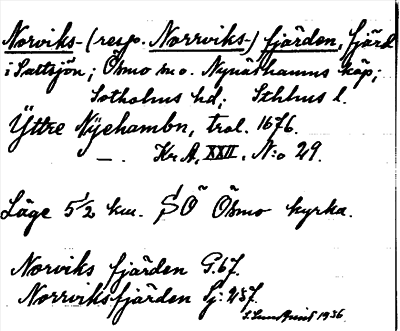 Norviks-(resp. Norrviks-) fjärden, fjärd
i Saltsjön; Ösmo s:n o. Nynäshamns köp;
Sotholms hd; Sthlms l.
Yttre Nyehambn, trol. 1676.
—. Kr. A, XXII, N:o 29.
Läge 5 1/2 km. SO Ösmo kyrka.
Norviks fjärden G. 67.
Norrviksfjärden Sj: 257.
1936.